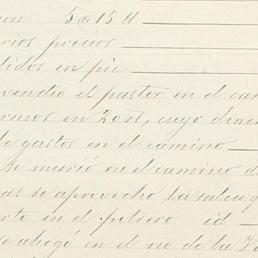 un 5 a 15 H
arios precios
didos en pie
vendio el pastor en el cam
ermos en 20rs, cuyo diner
de gastos en el camino
Se murió en el camino d
as se aprovecho la salea q
rto en el potrero id
se ahogó en el rio de la